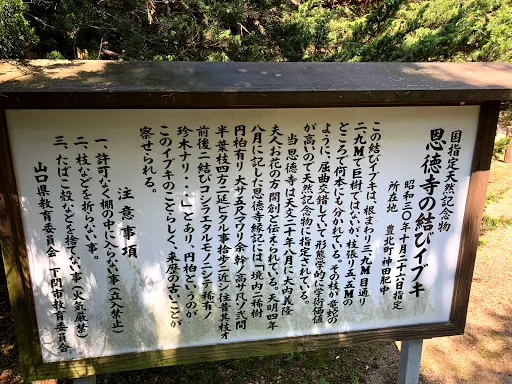 国指定天然記念物
恩徳寺の結びイブキ
昭和三〇年十月二十六日指定
所在地 豊北町神田肥中
この結びイブキは、根まわり三九M目通り
二、九Mで巨樹ではないが、枝張り五、五Mの
ところで何本にも分かれている。その枝が竜蛇の
ように、屈曲交錯していて形態学的に学術価値
が高いので天然記念物に指定されている。
当恩徳寺は天文二十年八月に大内義隆
夫人お花の方開創と伝えられている。天明四年
八月に記した恩徳寺縁記には「境内ニ稀樹
円柏有リ大サ五尺アマリ余幹ノ高サ凡ソ弐間
半葉枝四方ニ延ビタル事拾歩ニ近シ往昔見枝オ
前後ニ結ビコシラエタルモノニシテ稀有ノ
珍木ナリ…」とあり、円柏というのが
このイブキのことらしく、来歴の古いことが
察せられる。
注意事項
一、許可なく柵の中に入らない事(立入禁止)
二、枝などを折らない事。
三、たばこ殻などを捨てない事(火気厳禁)
山口県教育委員会 下関市教育委員会